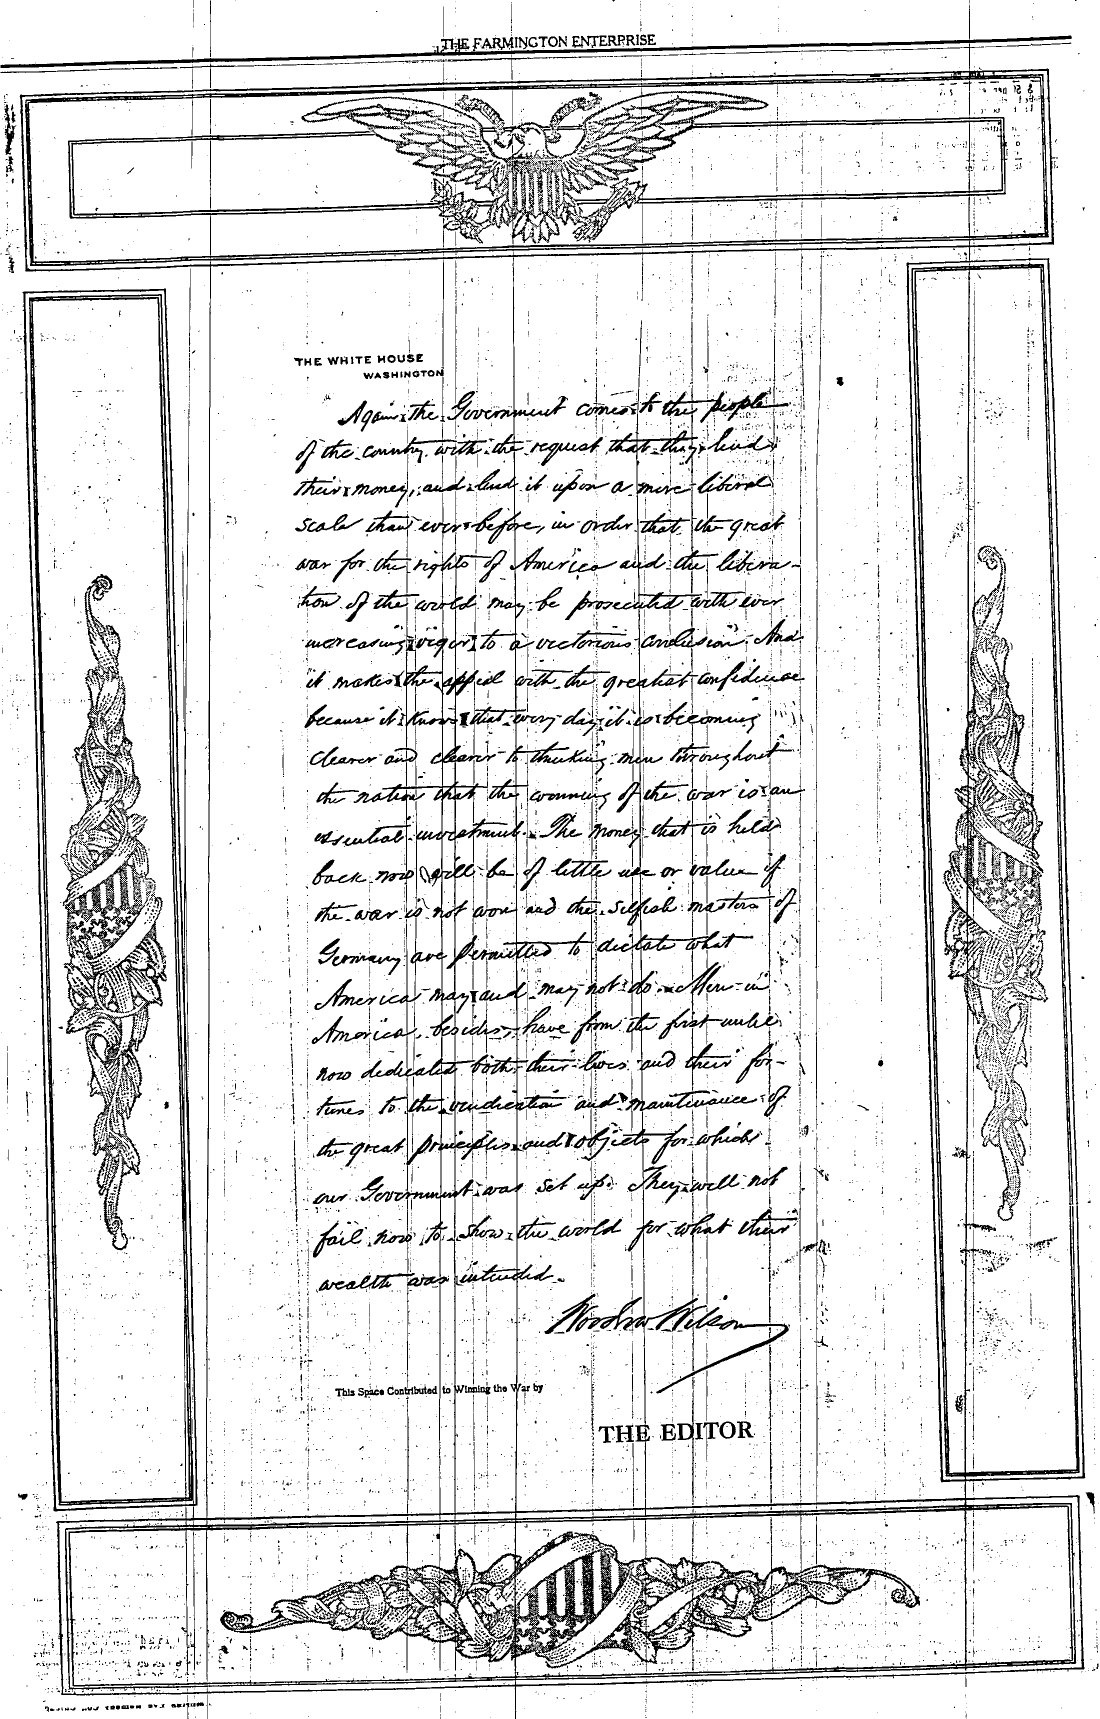 THE FARMINGTON ENTERPRISE
THE WHITE HOUSE
WASHINGTON
Again the Government comes to the people
of the country with the request that they lend
their money, and lend it upon a more liberal
scale than ever before, in order that the great
war for the rights of America and the libera-
tion of the world may be prosecuted with ever
increasing vigor to a victorious conclusion. And
it makes the appeal with the greatest confidence
because it knows that every day it is becoming
clearer and clearer to thinking men throughout
the nation that the winning of the war is an
essential investment. The money that is held
back now will be of little use or value if
the war is not won and the selfish masters of
Germany are permitted to dictate what
America may and may not do. Men in
America, besides, have from the first until
now dedicated both their lives and their for-
tunes to the vindication and maintenance of
the great principles and objects for which
our Government was set up. They will not
fail now to show the world for what their
wealth was intended.
Woodrow Wilson
This Space Contributed to Winning the War by
THE EDITOR